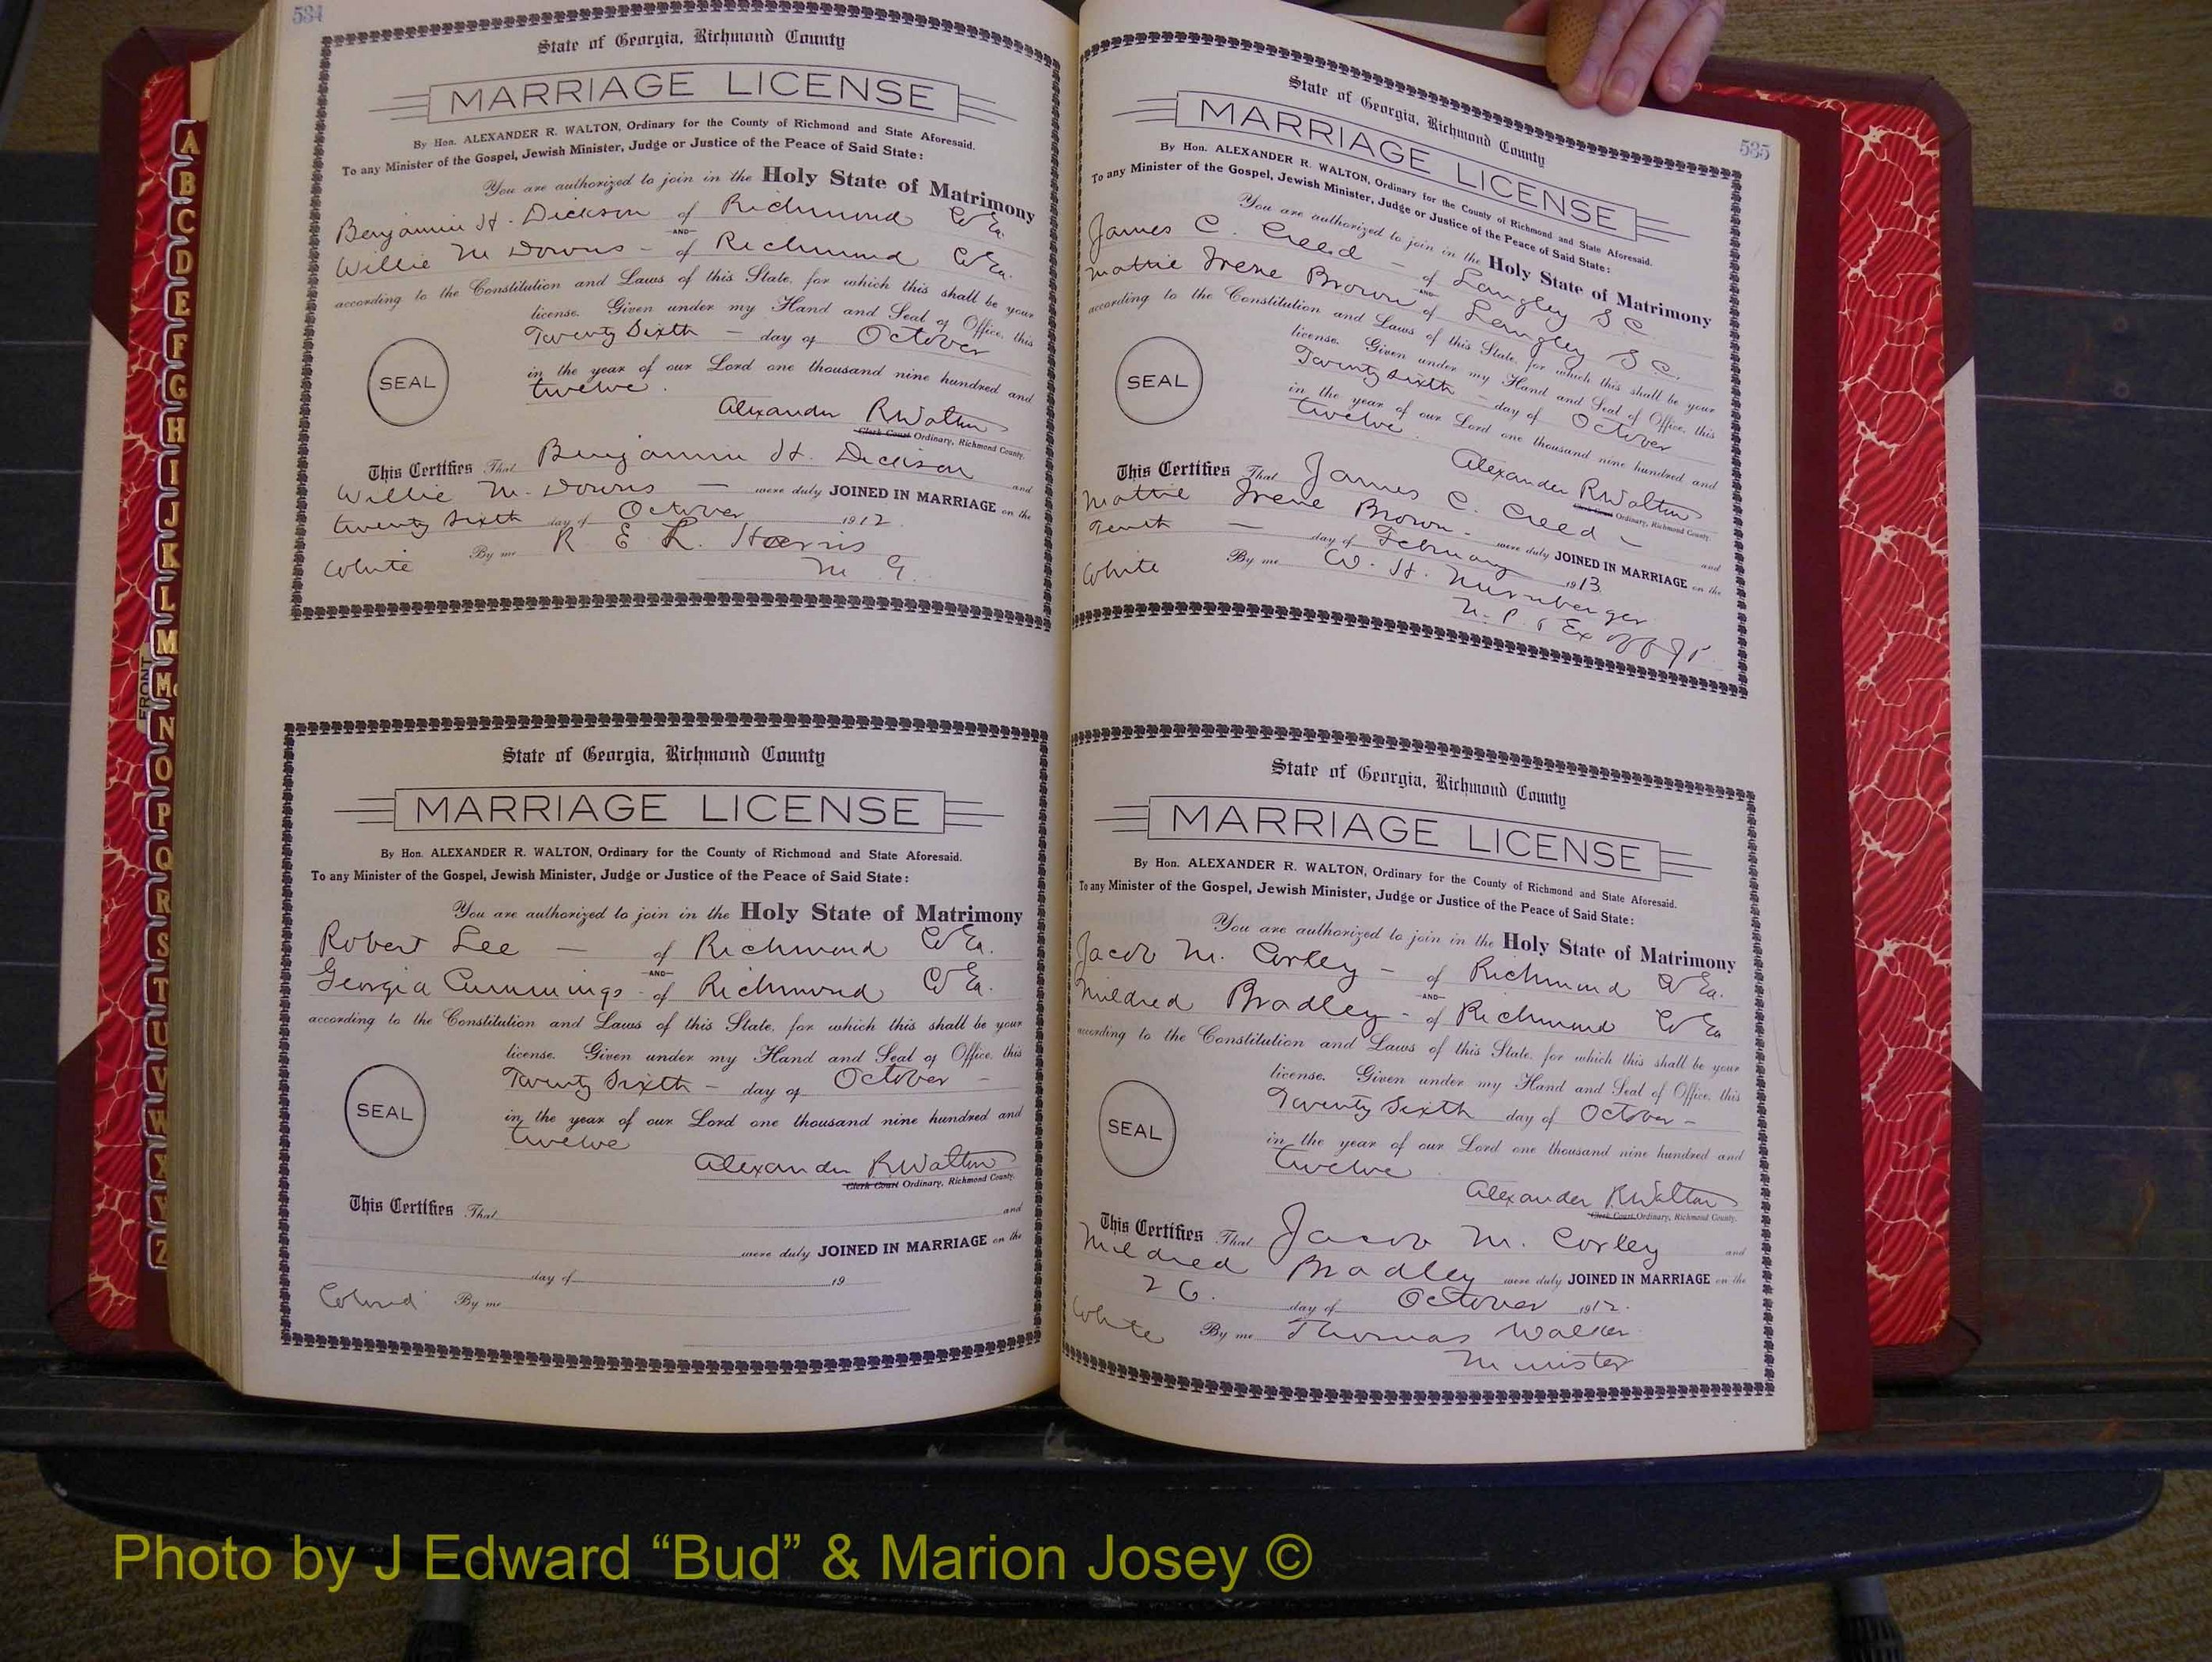 534
State of Georgia, Richmond County
MARRIAGE LICENSE
By Hon. ALEXANDER R. WALTON, Ordinary for the County of Richmond and State Aforesaid.
To any Minister of the Gospel, Jewish Minister, Judge or Justice of the Peace of Said State:
You are authorized to join in the Holy State of Matrimony
Benjamin H. Dickson of Richmond Co Ga.
AND
Willie M Downs - of Richmond Co Ga.
according to the Constitution and Laws of this State, for which this shall be your
license. Given under my Hand and Seal of Office, this
Twenty Sixth - day of October
in the year of our Lord one thousand nine hundred and
twelve.
SEAL
Alexander R Walton
Clerk Court Ordinary, Richmond County.
This Certifies That Benjamin H. Dickson and
Willie M. Downs - were duly JOINED IN MARRIAGE on the
twenty sixth day of October 1912.
White By me R E L. Harris
M G.
State of Georgia, Richmond County
MARRIAGE LICENSE
By Hon. ALEXANDER R. WALTON, Ordinary for the County of Richmond and State Aforesaid.
To any Minister of the Gospel, Jewish Minister, Judge or Justice of the Peace of Said State:
You are authorized to join in the Holy State of Matrimony
Robert Lee - of Richmond Co Ga.
AND
Georgia Cummings - of Richmond Co Ga.
according to the Constitution and Laws of this State, for which this shall be your
license. Given under my Hand and Seal of Office, this
Twenty Sixth - day of October -
in the year of our Lord one thousand nine hundred and
twelve
SEAL
Alexander R Walton
Clerk Court Ordinary, Richmond County.
This Certifies That and
were duly JOINED IN MARRIAGE on the
day of 19
Colored By me
535
State of Georgia, Richmond County
MARRIAGE LICENSE
By Hon. ALEXANDER R. WALTON, Ordinary for the County of Richmond and State Aforesaid.
To any Minister of the Gospel, Jewish Minister, Judge or Justice of the Peace of Said State:
You are authorized to join in the Holy State of Matrimony
James C. Creed - of Langley S C
AND
Mattie Irene Brown of Langley S C.
according to the Constitution and Laws of this State, for which this shall be your
license. Given under my Hand and Seal of Office, this
Twenty Sixth - day of October
in the year of our Lord one thousand nine hundred and
twelve.
SEAL
Alexander R Walton
Clerk Court Ordinary, Richmond County.
This Certifies That James C. Creed - and
Mattie Irene Brown - were duly JOINED IN MARRIAGE on the
Tenth - day of February 1913
White By me W. H. Nurnberger
N. P & Ex Off J P.
State of Georgia, Richmond County
MARRIAGE LICENSE
By Hon. ALEXANDER R. WALTON, Ordinary for the County of Richmond and State Aforesaid.
To any Minister of the Gospel, Jewish Minister, Judge or Justice of the Peace of Said State:
You are authorized to join in the Holy State of Matrimony
Jacob M. Corley - of Richmond Co Ga.
AND
Mildred Bradley - of Richmond Co Ga
according to the Constitution and Laws of this State, for which this shall be your
license. Given under my Hand and Seal of Office, this
Twenty Sixth day of October -
in the year of our Lord one thousand nine hundred and
twelve
SEAL
Alexander R Walton
Clerk Court Ordinary, Richmond County.
This Certifies That Jacob M. Corley and
Mildred Bradley were duly JOINED IN MARRIAGE on the
26. day of October 1912.
White By me Thomas Walker
Minister
A
B
C
D
E
F
G
H
I
J
K
L
M
Mc
N
O
P
Q
R
S
T
U
V
W
X
Y
Z
FRONT
Photo by J Edward “Bud” & Marion Josey ©